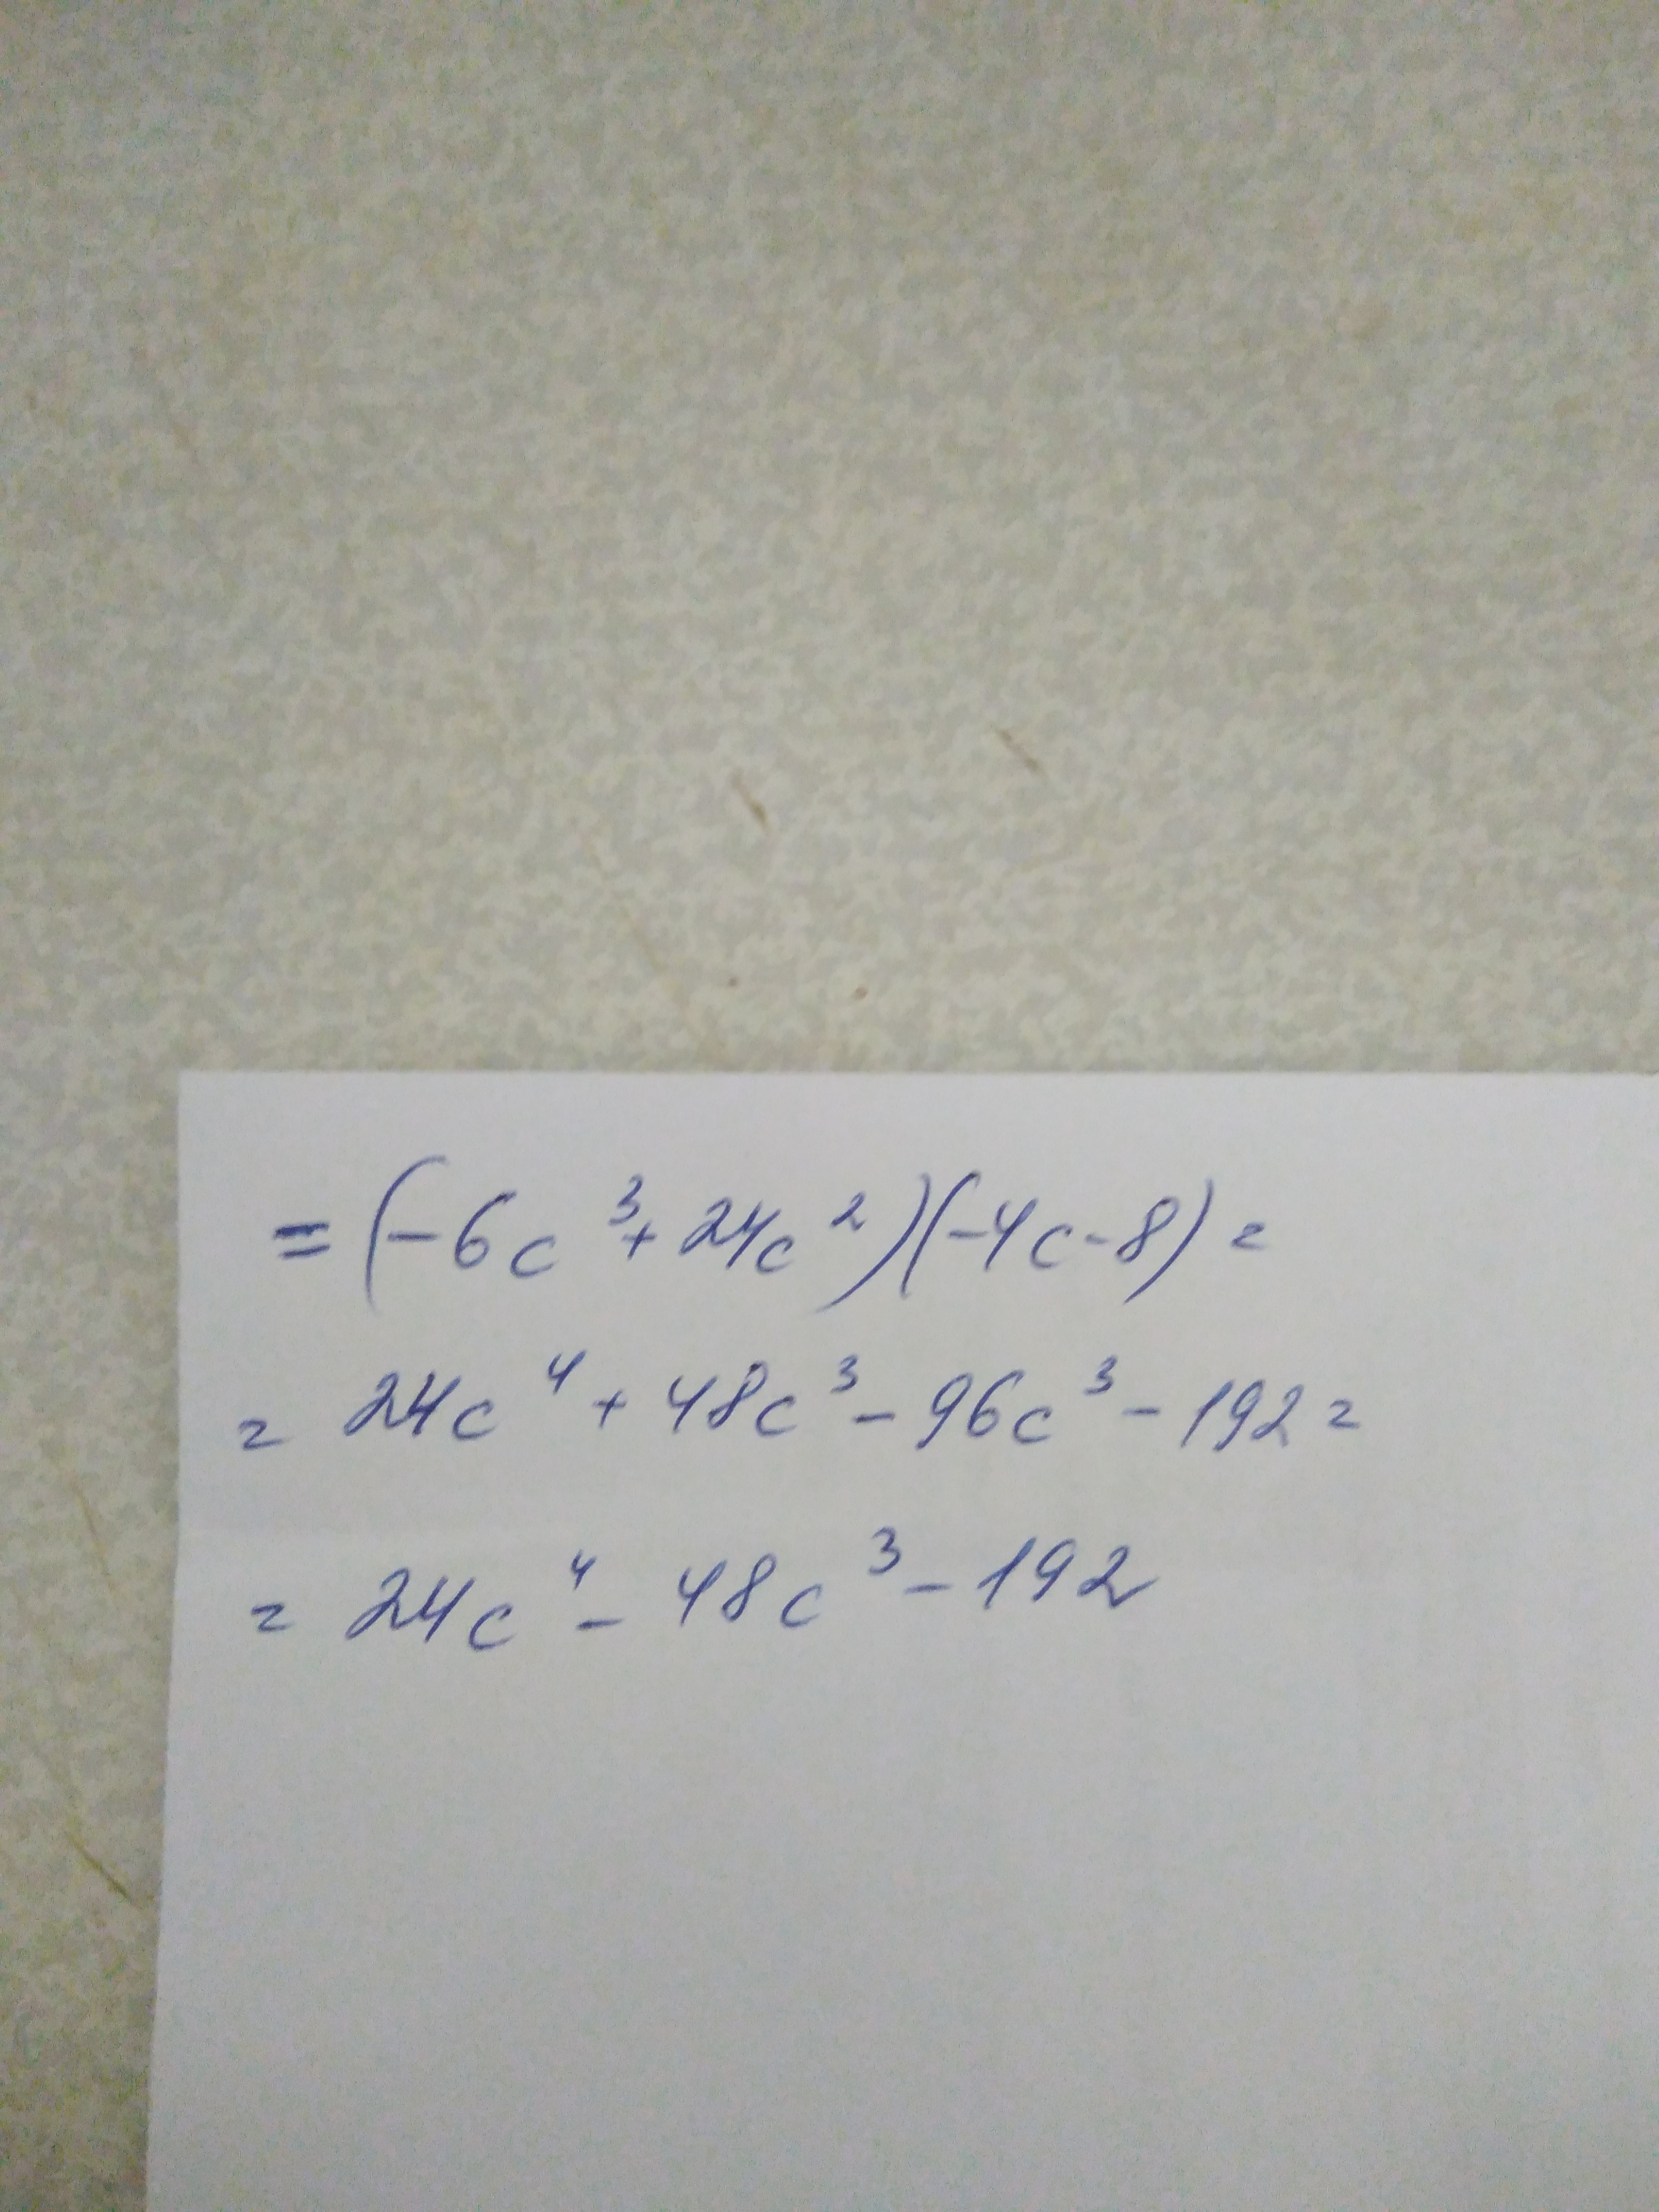 = (-6c³ + 24c²)(-4c - 8) =
= 24c⁴ + 48c³ - 96c³ - 192 =
= 24c⁴ - 48c³ - 192